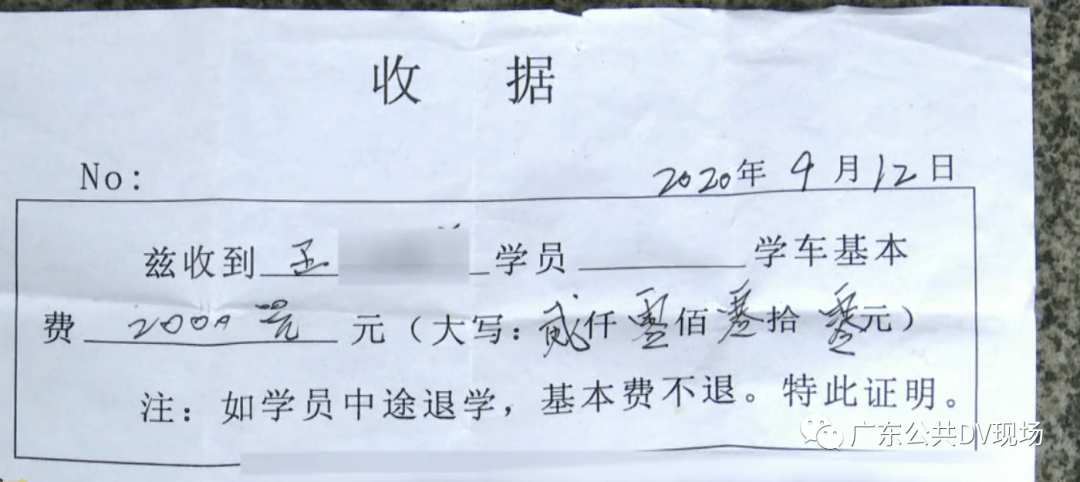 收 据
No: 2020年9月12日
兹收到 学员 学车基本
费 2000 元 元（大写：贰仟零佰零拾零元）
注：如学员中途退学，基本费不退。特此证明。
广东公共DV现场